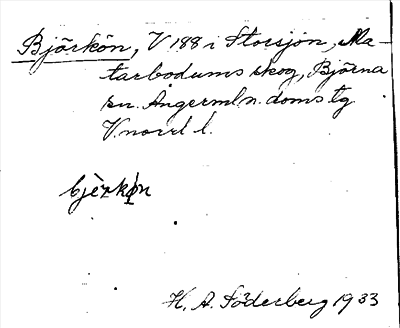 Björkön, V 188 i Storsjön, Ma-
tarbodums skog, Björna
sn. Ångermln. doms tg
V.norrl l.
bjèrkn
H. A. Söderberg 1933